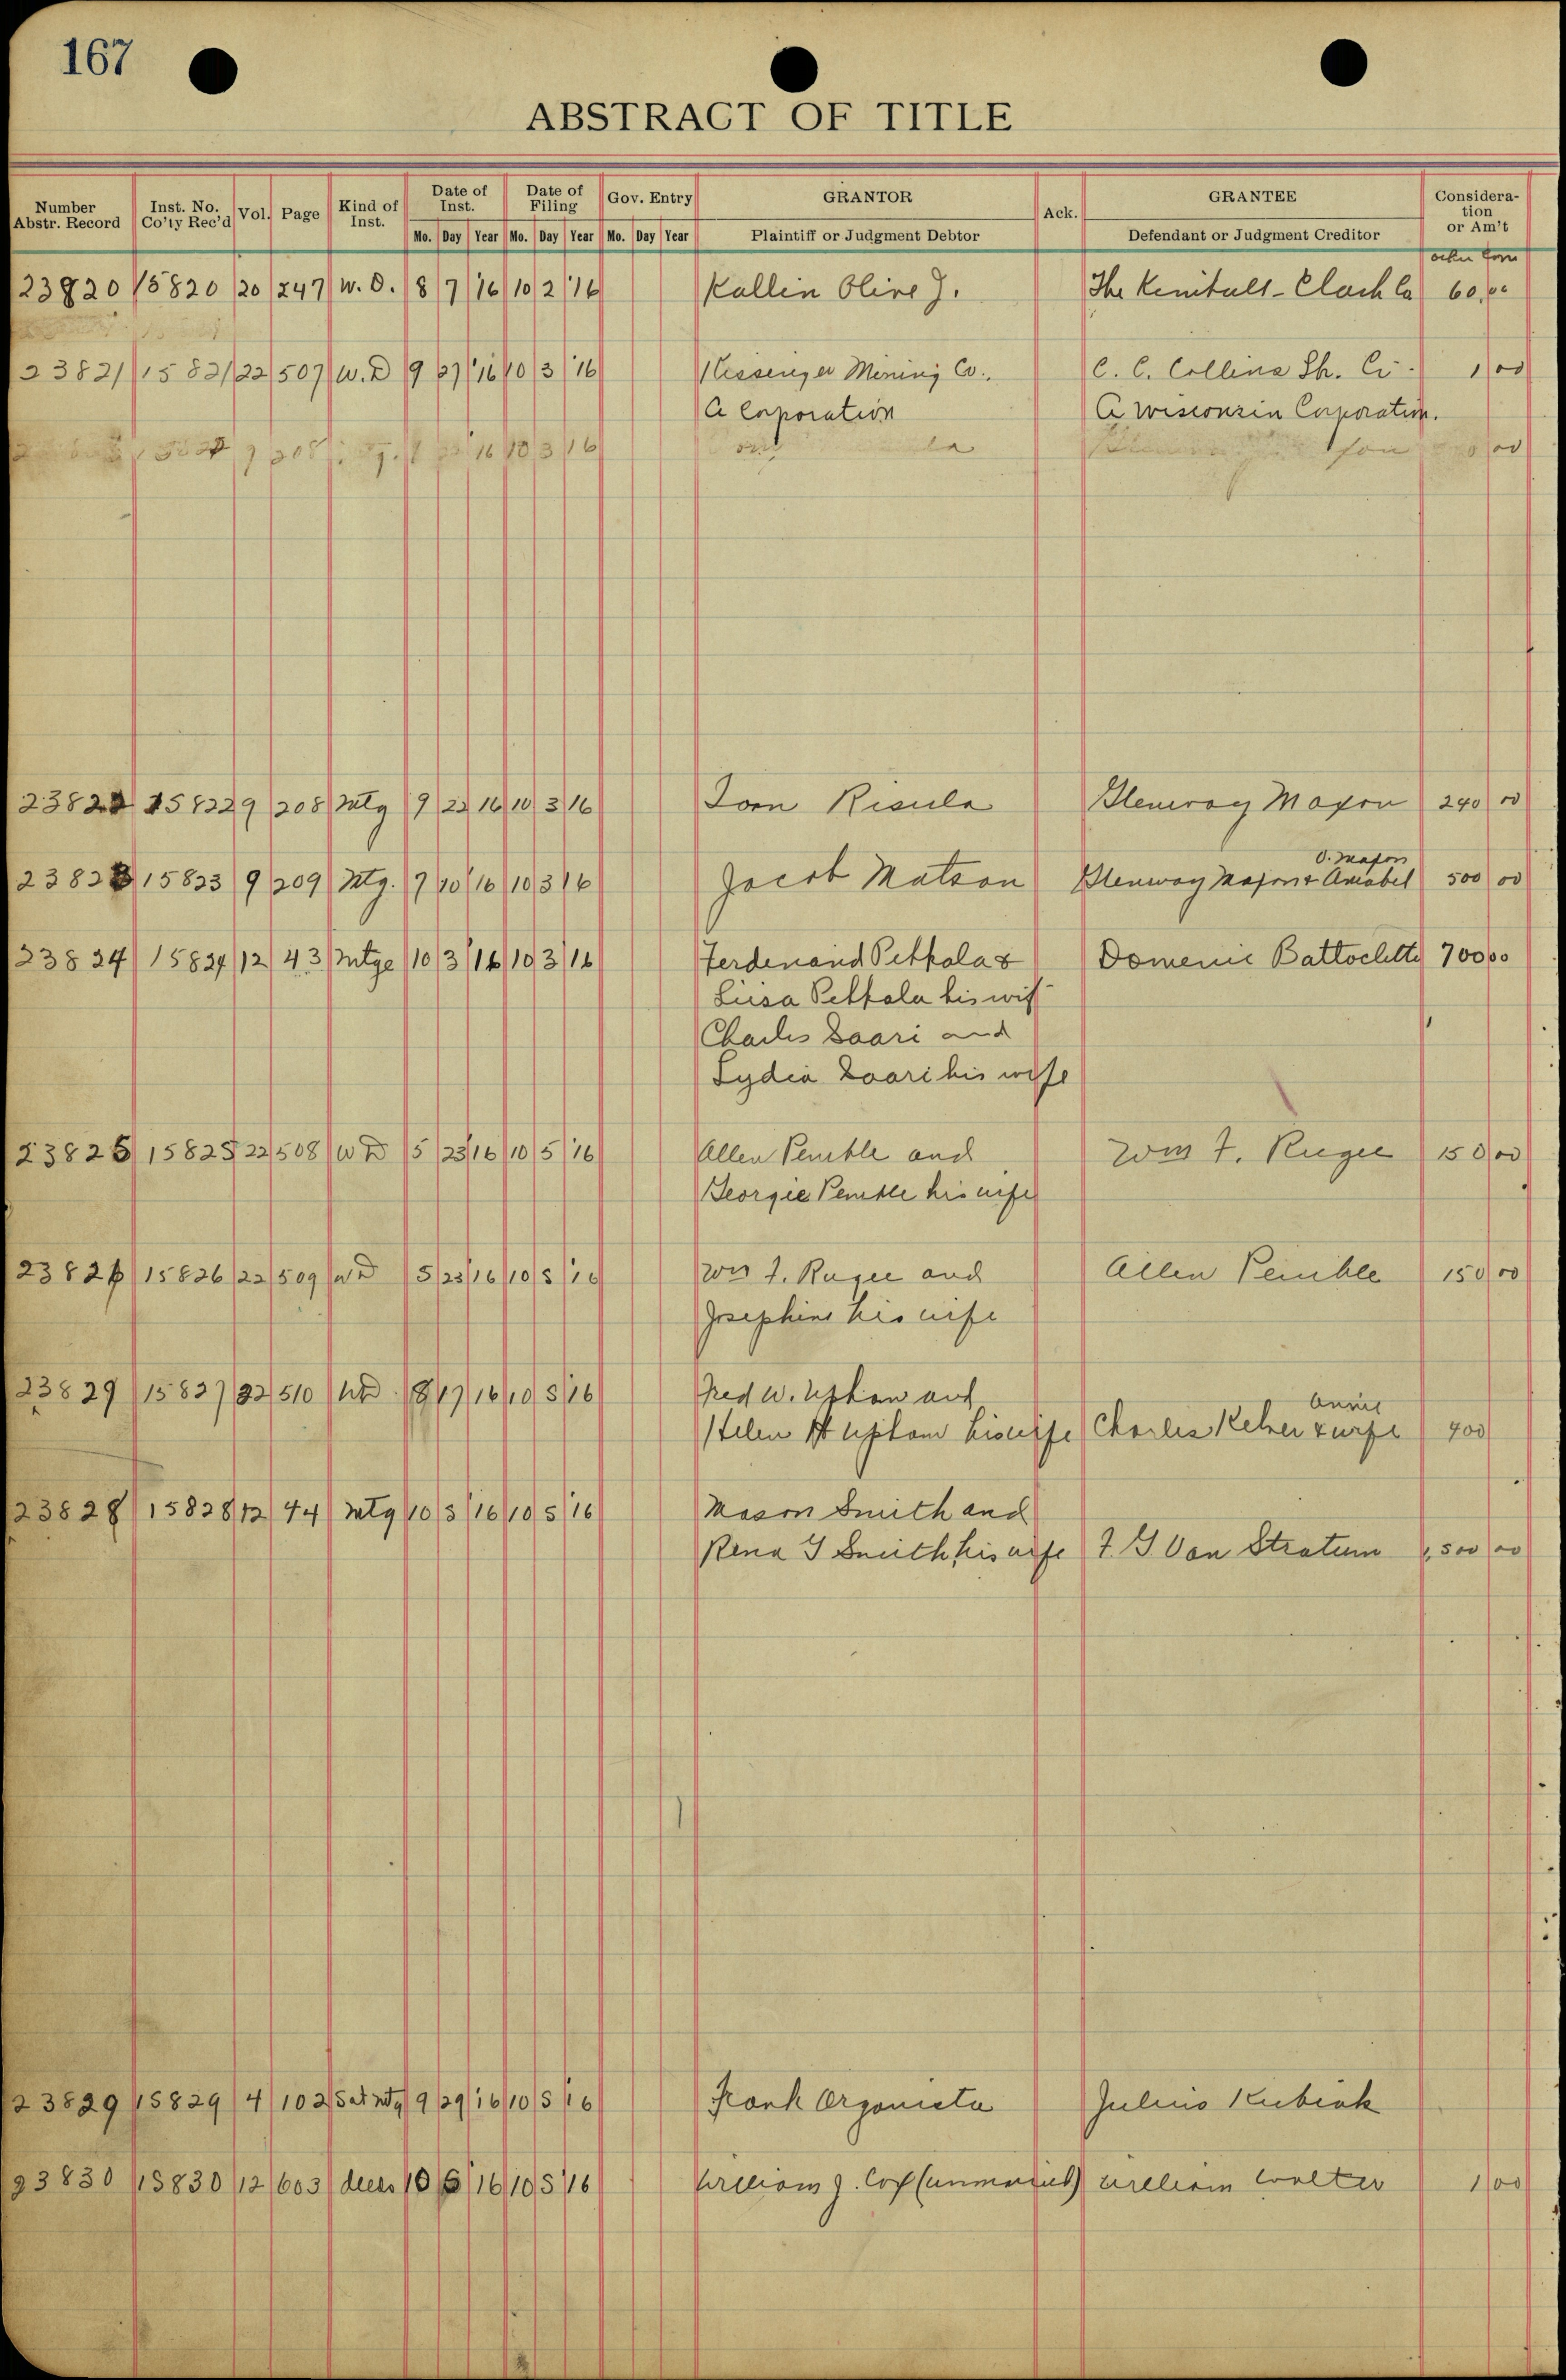 167
ABSTRACT OF TITLE
Number Abstr. Record Inst. No. Co'ty Rec'd Vol. Page Kind of Inst. Date of Inst. Date of Filing Gov. Entry GRANTOR Ack. GRANTEE Consideration or Am't
Mo. Day Year Mo. Day Year Mo. Day Year Plaintiff or Judgment Debtor Defendant or Judgment Creditor
23820 15820 20 247 W.D. 8 7 '16 10 2 '16 Kallin Olive J. The 60.00
23821 15821 22 507 W.D 9 27 '16 10 3 '16 Messenger Mining Co. C. C. Collins Sh. Co. 1 00
A Corporation A Wisconsin Corporation.
16 10 3 16 00
23822 15822 9 208 Mtg 9 22 16 10 3 16 Risula Glenway Maxon 240 00
23823 15823 9 209 Mtg. 7 10 16 10 3 16 Jacob Matson Glenway Maxon & Amabel O. Maxon 500 00
23824 15824 12 43 Mtge 10 3 16 10 3 16 Ferdenand Pettola & Domenic 700 00
Liisa Pettola his wif
Charles Saari and
Lydia Saari his wife
23825 15825 22 508 W D 5 23 16 10 5 '16 Allen Pemble and Wm F. Rugee 150 00
Georgie Pemble his wife
23826 15826 22 509 WD 5 23 16 10 5 16 Wm F. Rugee and Allen Pemble 150 00
Josephine his wife
23829 15827 22 510 WD 8 17 16 10 5 16 Fred W. Upham and
Helen Upham his wife Charles & Annie wife 400
23828 15828 12 44 Mtg 10 3 16 10 5 16 Mason Smith and
Rena Smith his wife F. J. Van Stratum 1,500 00
23829 15829 4 102 Sat Mtg 9 29 16 10 5 16 Frank Organista Julius Kubiak
23830 15830 12 603 deeds 10 16 10 5 16 William J. Cox (unmarried) William Walter 1 00